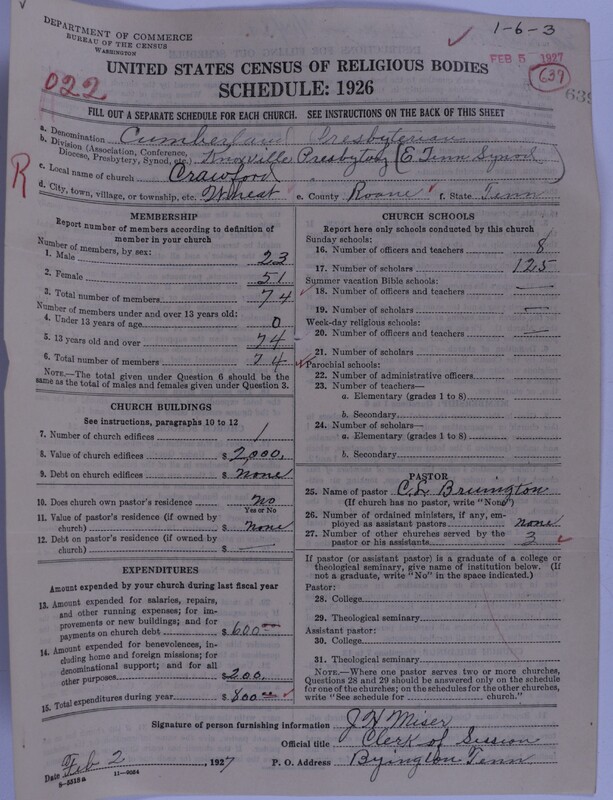 DEPARTMENT OF COMMERCE
BUREAU OF THE CENSUS
WASHINGTON
1-6-3
FEB 5 1927
022
637
639
UNITED STATES CENSUS OF RELIGIOUS BODIES
SCHEDULE: 1926
FILL OUT A SEPARATE SCHEDULE FOR EACH CHURCH. SEE INSTRUCTIONS ON THE BACK OF THIS SHEET
a. Denomination Cumberland Presbyterian
b. Division (Association, Conference, Diocese, Presbytery, Synod, etc.) Knoxville Presbytery (E Tenn Synod)
R
c. Local name of church Crawford
d. City, town, village, or township, etc. Wheat e. County Roane f. State Tenn
MEMBERSHIP
Report number of members according to definition of
member in your church
Number of members, by sex:
1. Male 23
2. Female 51
3. Total number of members 74
Number of members under and over 13 years old:
4. Under 13 years of age 0
5. 13 years old and over 74
6. Total number of members 74
NOTE.—The total given under Question 6 should be the
same as the total of males and females given under Question 3.
CHURCH BUILDINGS
See instructions, paragraphs 10 to 12
7. Number of church edifices 1
8. Value of church edifices $ 2,000.
9. Debt on church edifices $ None
10. Does church own pastor's residence No
Yes or No
11. Value of pastor's residence (if owned by
church) $ None
12. Debt on pastor's residence (if owned by
church) $ —
EXPENDITURES
Amount expended by your church during last fiscal year
13. Amount expended for salaries, repairs,
and other running expenses; for im-
provements or new buildings; and for
payments on church debt $ 600
14. Amount expended for benevolences, in-
cluding home and foreign missions; for
denominational support; and for all
other purposes $ 200
15. Total expenditures during year $ 800
CHURCH SCHOOLS
Report here only schools conducted by this church
Sunday schools:
16. Number of officers and teachers 8
17. Number of scholars 125
Summer vacation Bible schools:
18. Number of officers and teachers —
19. Number of scholars —
Week-day religious schools:
20. Number of officers and teachers —
21. Number of scholars
Parochial schools:
22. Number of administrative officers
23. Number of teachers—
a. Elementary (grades 1 to 8)
b. Secondary
24. Number of scholars—
a. Elementary (grades 1 to 8)
b. Secondary
PASTOR
25. Name of pastor C.L. Bruington
(If church has no pastor, write "None")
26. Number of ordained ministers, if any, em-
ployed as assistant pastors none
27. Number of other churches served by the
pastor or his assistants 3
If pastor (or assistant pastor) is a graduate of a college or
theological seminary, give name of institution below. (If
not a graduate, write "No" in the space indicated.)
Pastor:
28. College
29. Theological seminary
Assistant pastor:
30. College
31. Theological seminary
NOTE.—Where one pastor serves two or more churches,
Questions 28 and 29 should be answered only on the schedule
for one of the churches; on the schedules for the other churches,
write "See schedule for church."
Signature of person furnishing information J H Miser
Official title Clerk of Session
Date Feb 2, 1927 P. O. Address Byington Tenn
8-5318a 11-9064